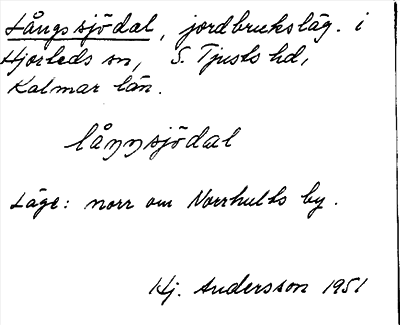 Långssjödal, jordbruksläg. i
Hjorteds sn, S. Tjusts hd,
Kalmar län.
låŋŋsjödal
Läge: norr om Norrhults by.
Hj. Andersson 1951